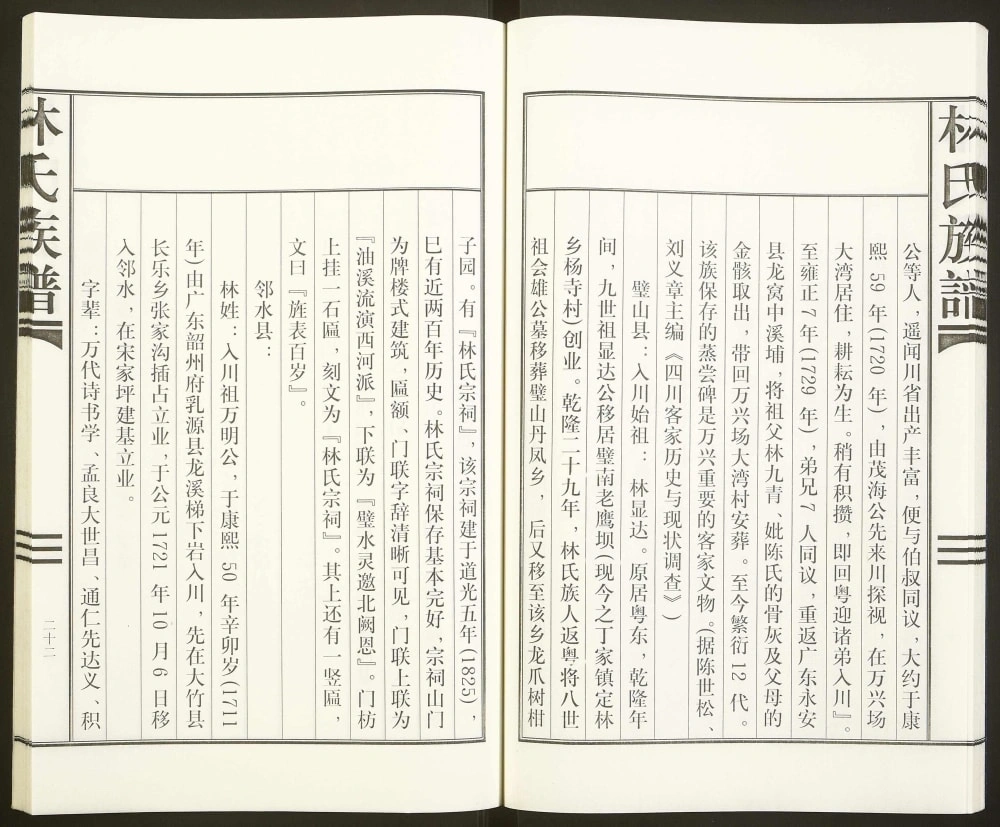 林氏族譜
公等人，遥闻川省出产丰富，便与伯叔同议，大约于康
熙 59 年(1720 年)，由茂海公先来川探视，在万兴场
大湾居住，耕耘为生。稍有积攒，即回粤迎诸弟入川』。
至雍正 7 年(1729 年)，弟兄 7 人同议，重返广东永安
县龙窝中溪埔，将祖父林九青、妣陈氏的骨灰及父母的
金骸取出，带回万兴场大湾村安葬。至今繁衍 12 代。
该族保存的蒸尝碑是万兴重要的客家文物。(据陈世松、
刘义章主编《四川客家历史与现状调查》)
璧山县：入川始祖：林显达。原居粤东，乾隆年
间，九世祖显达公移居璧南老鹰坝(现今之丁家镇定林
乡杨寺村)创业。乾隆二十九年，林氏族人返粤将八世
祖会雄公墓移葬璧山丹凤乡，后又移至该乡龙爪树柑
子园。有『林氏宗祠』，该宗祠建于道光五年(1825)，
巳有近两百年历史。林氏宗祠保存基本完好，宗祠山门
为牌楼式建筑，匾额、门联字辞清晰可见，门联上联为
『油溪流演西河派』，下联为『璧水灵邀北阙恩』。门枋
上挂一石匾，刻文为『林氏宗祠』。其上还有一竖匾，
文曰『旌表百岁』。
邻水县：
林姓：入川祖万明公，于康熙 50 年辛卯岁(1711
年)由广东韶州府乳源县龙溪梯下岩入川，先在大竹县
长乐乡张家沟插占立业，于公元 1721 年 10 月 6 日移
入邻水，在宋家坪建基立业。
字辈：万代诗书学、孟良大世昌、通仁先达义、积
林氏族谱
二十二